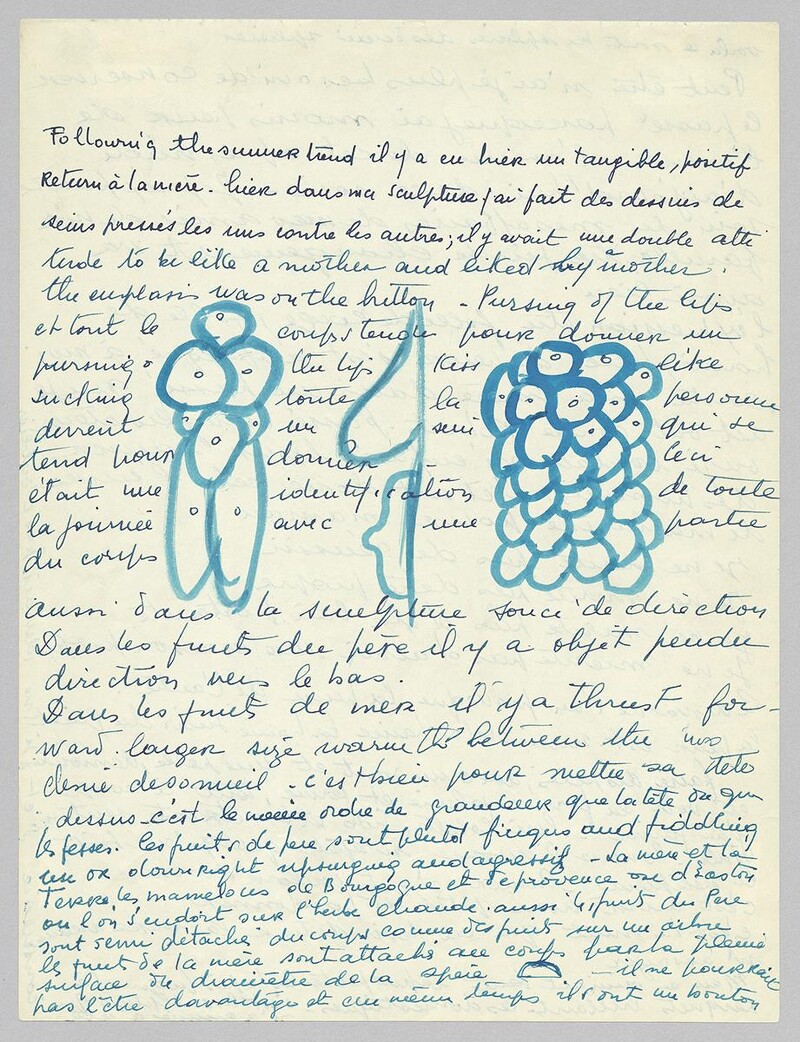 Following the summer trend il y a eu hier un tangible, positif
Return à la mère. hier dans ma sculpture j'ai fait des dessins de
seins pressés les uns contre les autres; il y avait une double atti
tude to be like a mother and liked by a mother.
the emphasis was on the button - Pursing of the lips
et tout le corps tendu pour donner un
pursing of the lips kiss like
sucking toute la personne
devient un sein qui se
tend pour donner - Ceci
était une identification de toute
la journée avec une partie
du corps
aussi dans la sculpture souci de direction
Dans les fruits du père il y a objet pendu
direction vers le bas.
Dans les fruits de mer il y a thrust for-
ward. larger size warmth between the two
de sommeil - c'est bien pour mettre sa tête
dessus - c'est le même ordre de grandeur que la tête ou que
les fesses. les fruits de pere sont plutôt fingers and fiddling
un or downright upsurging and agressif - La mère et la
Terre, les mamelons de Bourgogne et de provence or d'Easton
ou l'on s'endort sur l'herbe chaude. aussi les fruits du Pere
sont semi détachés du corps comme des fruits sur un arbre
les fruits de la mère sont attachés au corps par la pleine
surface du diamètre de la - il ne pourrait
pas l'être davantage et en même temps ils ont un bouton